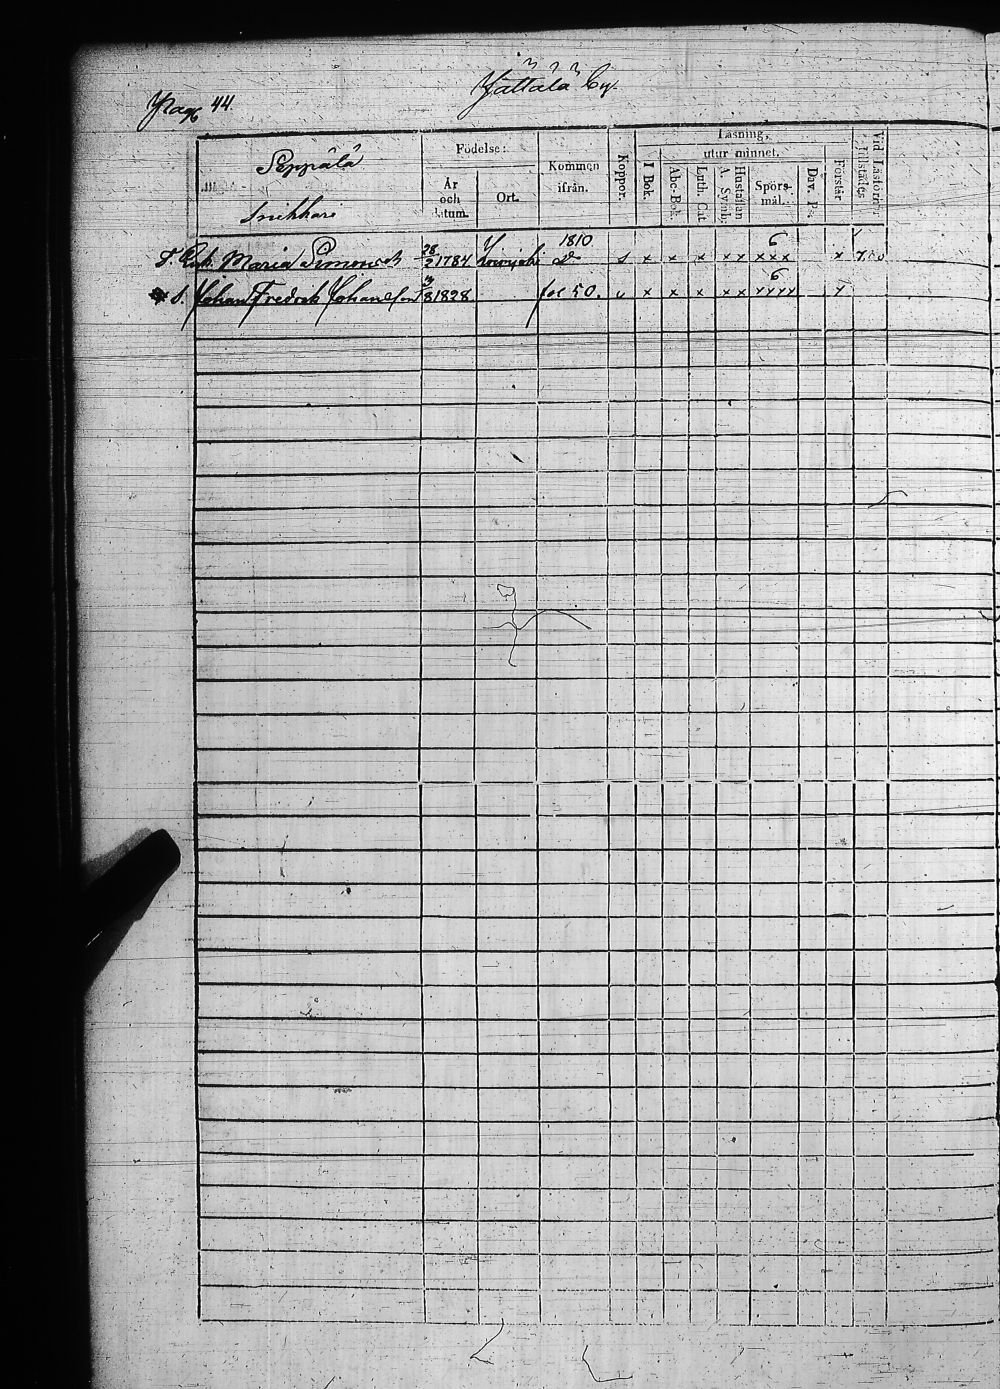 Pag 44.
Yättälä By.
Seppälä
Snikkare
Födelse:
År och datum.
Ort.
Kommen ifrån.
Koppor.
Läsning,
utur minnet.
I Bok.
Abc-Bok.
Luth. Cat.
Hustaflan A. Symb.
Spörs-mål.
Dav. Ps.
Förstår
Vid Läsförhör tillstädes
1810 6
Enk. Maria Simonsd. 28/2 1784 s x x x x x x x x x
6
S. Johan Fredrik Johansson 8 1828 fol 50. v x x x x x x x x x